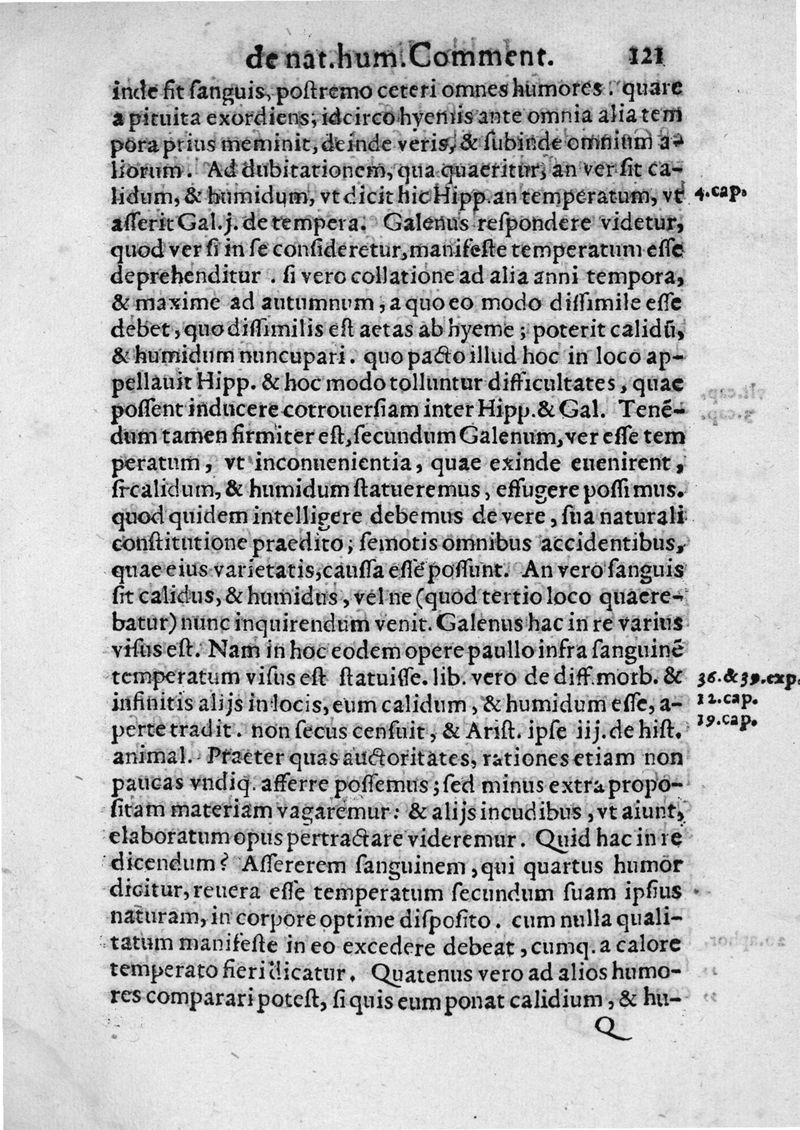 de nat. hum. Comment. 121
inde fit ſanguis, poſtremo ceteri omnes humores. quare
a pituita exordiens, idcirco hyemis ante omnia alia tem
pora prius meminit, deinde veris, & ſubinde omnium a-
liorum. Ad dubitationem, qua quaeritur, an ver ſit ca-
lidum, & humidum, vt dicit hic Hipp. an temperatum, vt
4. cap.
aſſerit Gal. j. de tempera. Galenus reſpondere videtur,
quod ver ſi in ſe conſideretur, manifeſte temperatum eſſe
deprehenditur . ſi vero collatione ad alia anni tempora,
& maxime ad autumnum, a quo eo modo diſſimile eſſe
debet, quo diſſimilis eſt aetas ab hyeme; poterit calidũ,
& humidum nuncupari. quo pacto illud hoc in loco ap-
pellauit Hipp. & hoc modo tolluntur difficultates, quae
poſſent inducere cotrouerſiam inter Hipp. & Gal. Tenẽ-
dum tamen firmiter eſt, ſecundum Galenum, ver eſſe tem
peratum, vt inconuenientia, quae exinde euenirent,
ſi calidum, & humidum ſtatueremus, effugere poſſimus.
quod quidem intelligere debemus de vere, ſua naturali
conſtitutione praedito; ſemotis omnibus accidentibus,
quae eius varietatis, cauſſa eſſe poſſunt. An vero ſanguis
ſit calidus, & humidus, vel ne (quod tertio loco quaere-
batur) nunc inquirendum venit. Galenus hac in re varius
viſus eſt. Nam in hoc eodem opere paullo infra ſanguinẽ
temperatum viſus eſt ſtatuiſſe. lib. vero de diff. morb. &
36. & 39. exp.
infinitis alijs in locis, eum calidum, & humidum eſſe, a-
12. cap.
perte tradit. non ſecus cenſuit, & Ariſt. ipſe iij. de hiſt.
19. cap.
animal. Praeter quas auctoritates, rationes etiam non
paucas vndiq. afferre poſſemus; ſed minus extra propo-
ſitam materiam vagaremur: & alijs incudibus, vt aiunt,
elaboratum opus pertractare videremur. Quid hac in re
dicendum? Aſſererem ſanguinem, qui quartus humor
dicitur, reuera eſſe temperatum ſecundum ſuam ipſius
naturam, in corpore optime diſpoſito. cum nulla quali-
tatum manifeſte in eo excedere debeat, cumq. a calore
temperato fieri dicatur. Quatenus vero ad alios humo-
res comparari poteſt, ſi quis eum ponat calidium, & hu-
Q